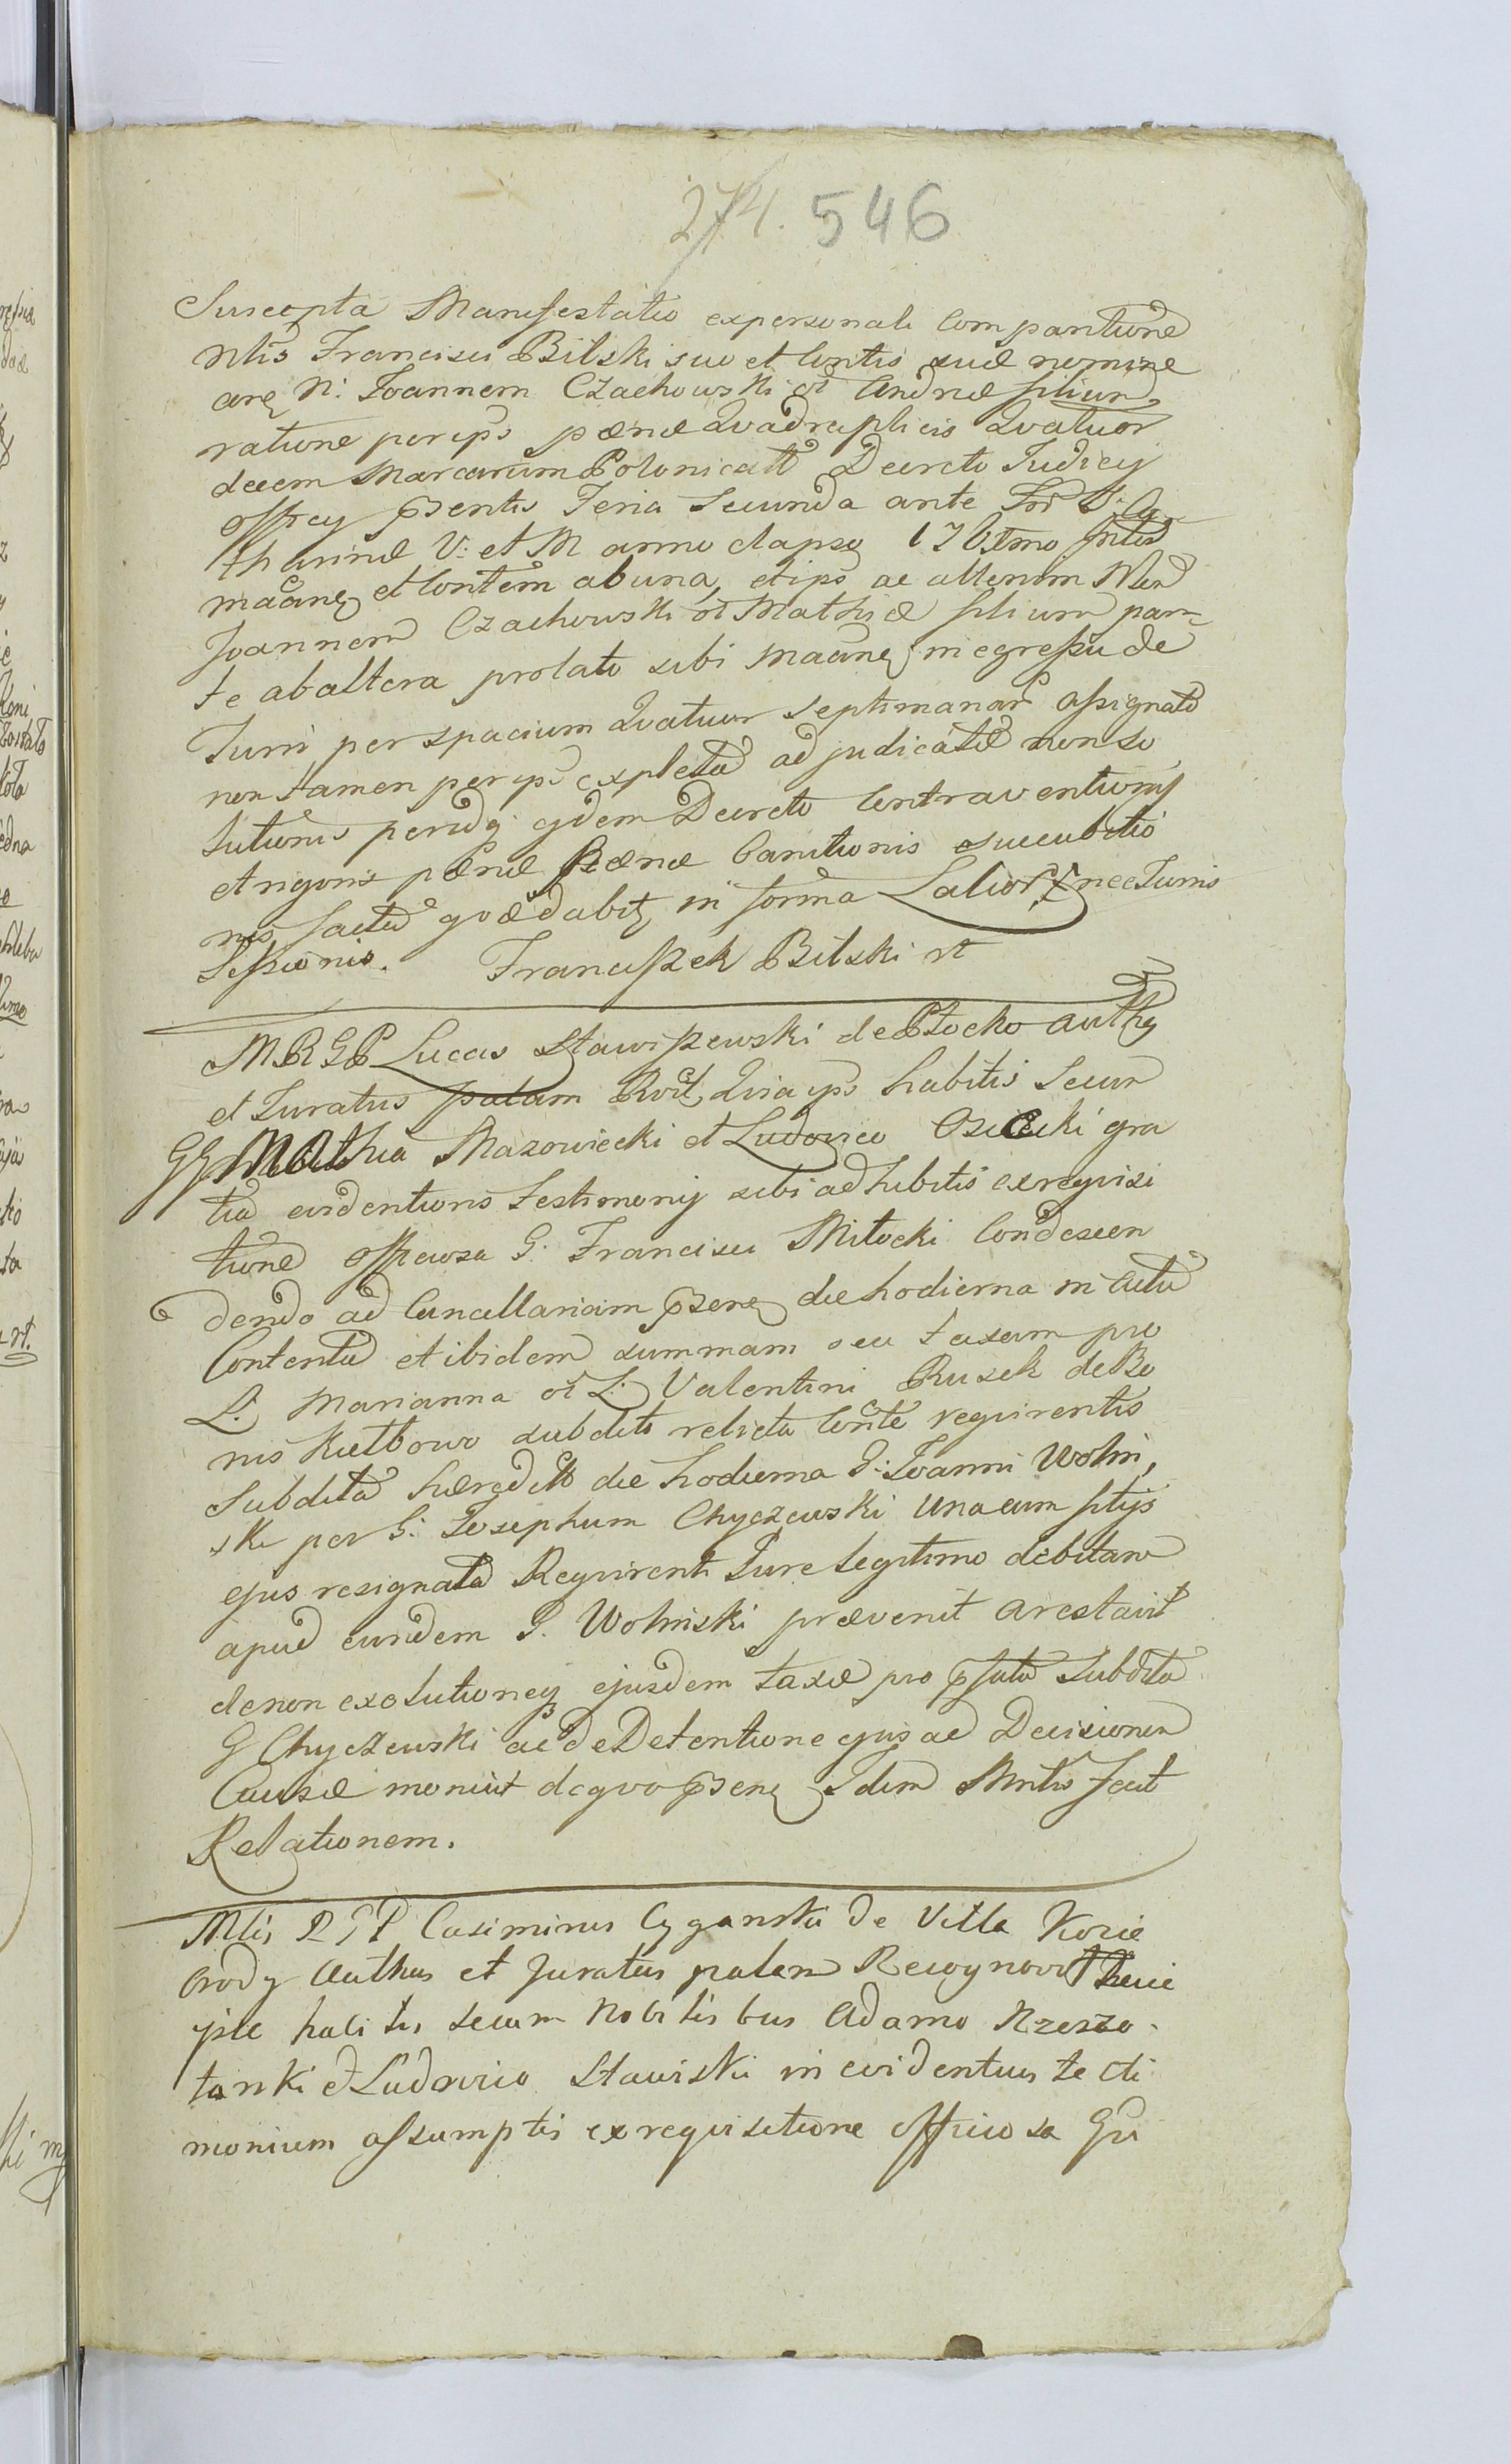 274. 546
Suscepta Manifestatio expersonali Comparitione
Nlis Francisci Bilski suo et Contis suæ nomine
N: Joannem Czachowski oł Andreæ filium
ratione per eps pænæ Qvadruplicis Qvatuor
decem Marcarum Polonicall Decreto Judicy
officy pzentis Feria Secunda ante Fest S: Ca
tharinæ V: et M anno elapso
et Contem abuna, etips ac alterum Nlem
Joannem Czachowski oł Mathiæ filium par-
te abaltera prolato sibi in egressu de
Turri per spacium Qvatuor septimanar assignato
non tamen per eps expleta adjudicatæ non so
lutionis Decreto Contraventionis
etrigoris pænæ Banitionis succubitio
nis facta in forma Latior nec Turris
Sessionis. Franciszek Bilski rt
MRGP Lucas Stawiszewski de Płocko auths
et Juratus palam Rvit Qvia eps habitis Secum
GG Mathia Mazowiecki et Ludovico Osiecki gra
tia evidentioris testimonij sibi adhibitis exreqvisi
tione officiosa G. Francisci Miłocki Condescen
dendo ad Cancellariam pzene die hodierna in Actu
Contenta et ibidem summam seu taxam pro
L. Marianna oł L. Valentini Rusek deBo
nis subdito relicta Conte reqvirentis
Subdita die hodierna G: Joanni Wolin,
ski per G: Josephum Chyczewski Unacum filijs
ejus resignata Reqvirenti Jure legitimo debitam
apud eundem G. Wolinski prævenit arestavit
denon exolutioneq ejusdem taxæ pro pfata Subdita
G Chyczewski ac deDetentione ejus ad Decisionem
Causæ monuit deqvo pzens Idem Mntis fecit
Relationem.
Mlis RGP Casimirus Cyganski de Villa Kozie
brody Authus et Juratus palam Recognovit
ipse habitis secum Nobilibus Adamo Rzeszo-
tarski et Ludovico Stawiski in evidentius testi
monium assumptis exreqvisitione officiosa Gsi